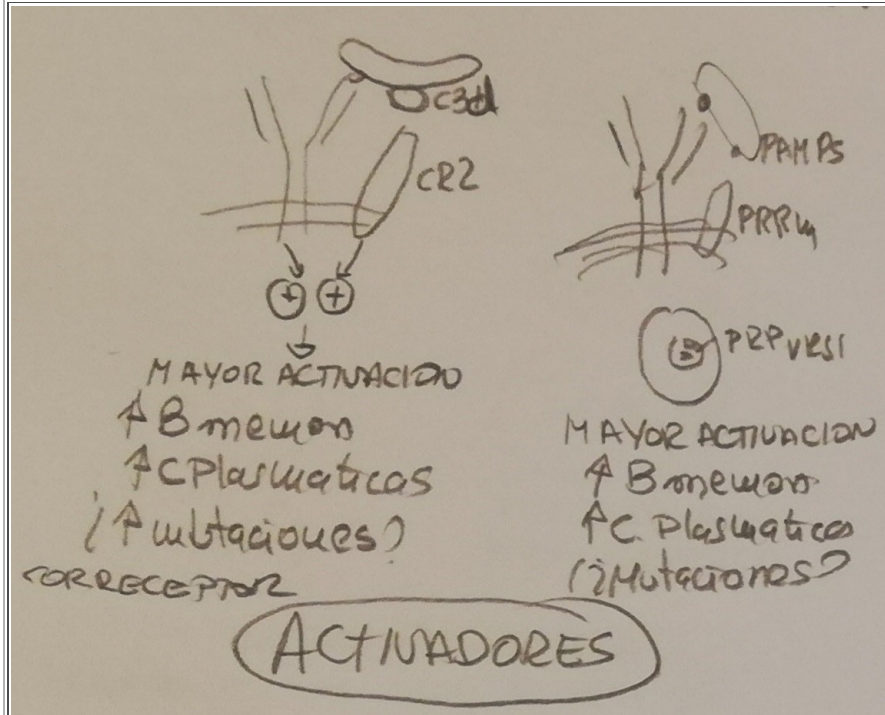 C3d
CR2
+ +
MAYOR ACTIVACION
↑ B memori
↑ C Plasmaticas
¿↑ mutaciones?
CORRECEPTOR
PAMPS
PRRm
MAYOR ACTIVACION
↑ B memori
↑ C. Plasmaticas
¿Mutaciones?
ACTIVADORES